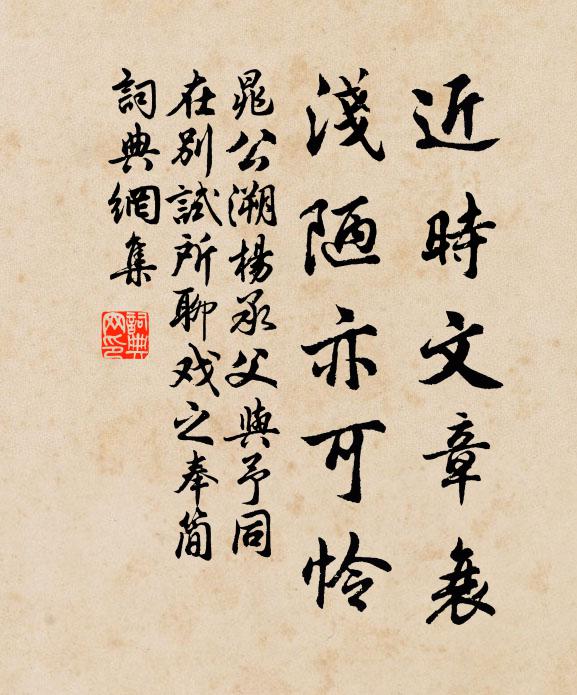 近時文章衰
淺陋亦可怜
晁公溯楊承父與予同
在別試所聊戏之奉简
詞典網集
詞典网印